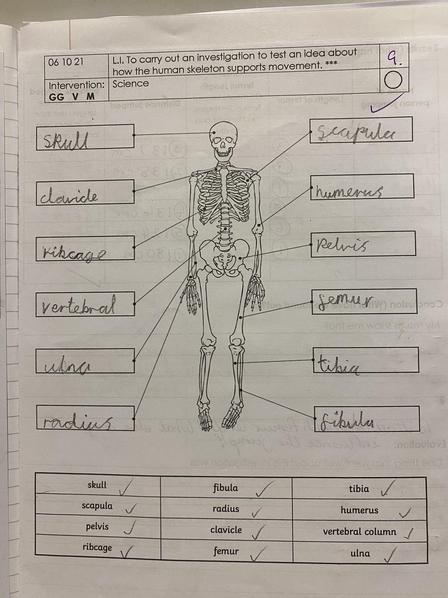 06 10 21
L.I. To carry out an investigation to test an idea about
how the human skeleton supports movement. ***
9.
Intervention:
GG V M
Science
skull
scapula
clavicle
humerus
ribcage
pelvis
vertebral
femur
ulna
tibia
radius
fibula
skull fibula tibia
scapula radius humerus
pelvis clavicle vertebral column
ribcage femur ulna